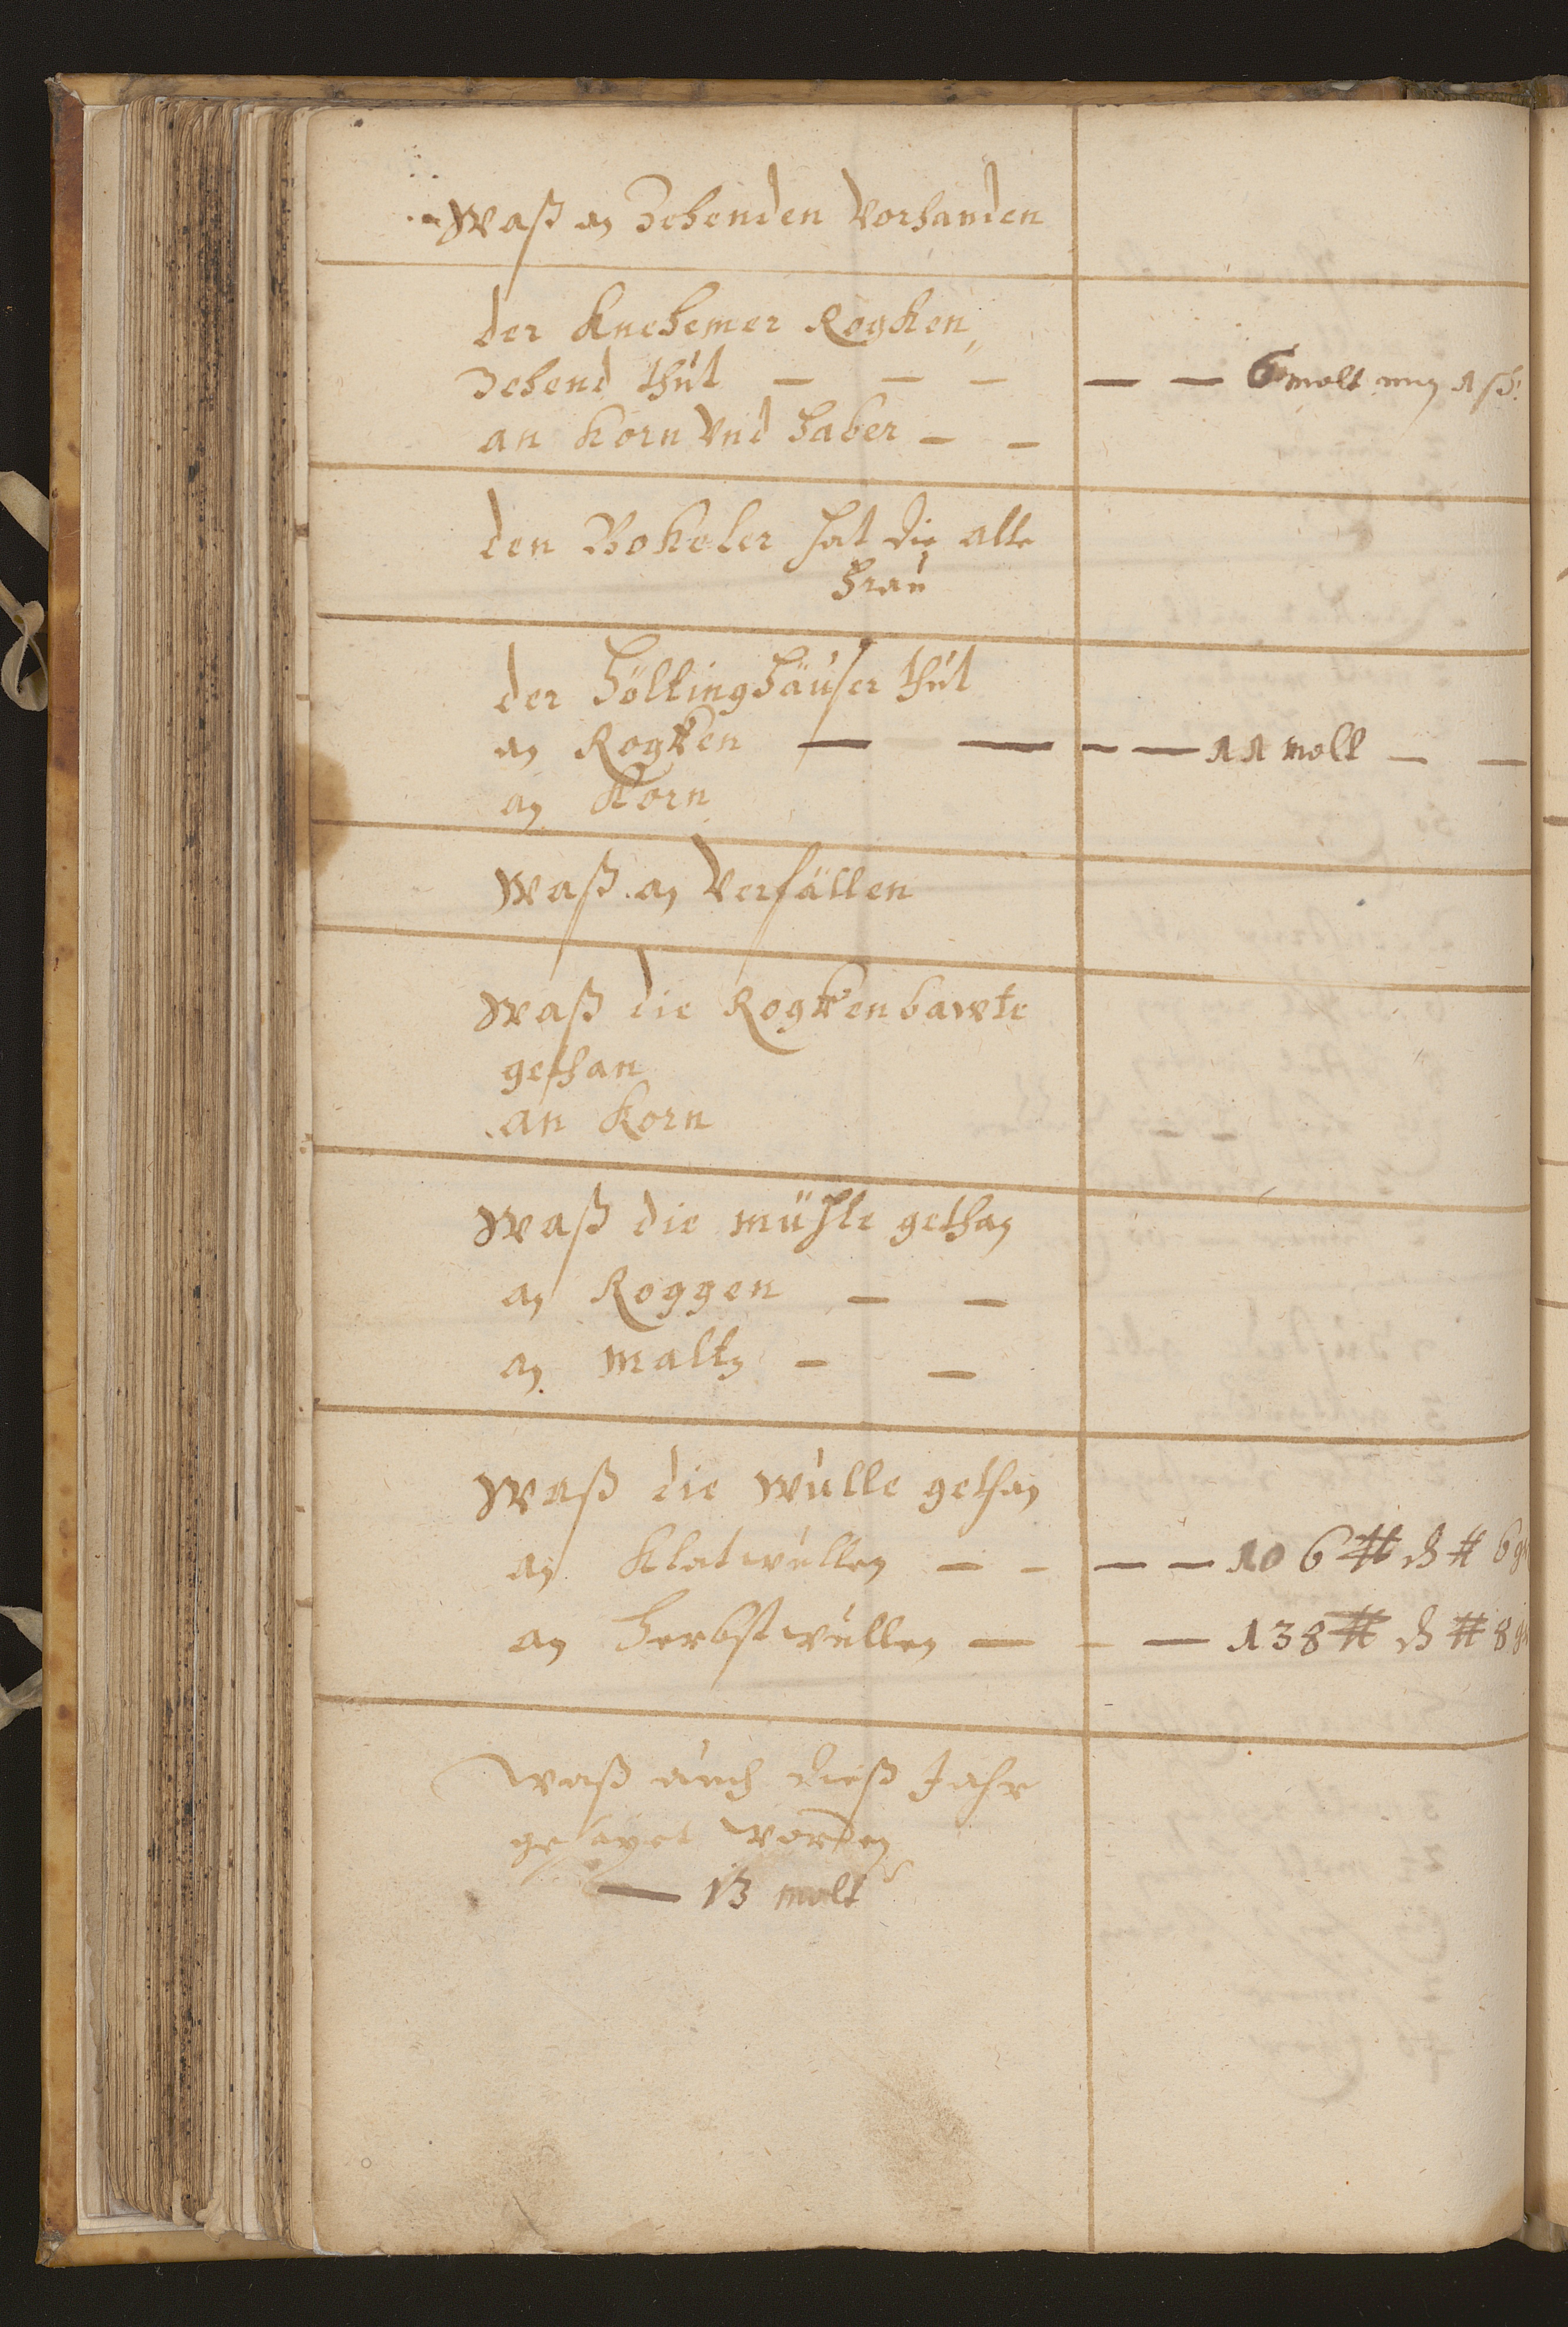 Waß an Zehenden Vorhanden
der Knehemer Rogken
Zehend thut — — — — — 6 molt min 1 sch:
an Korn Vnd haber — —
den Bokeler hat die alte
Frau
der Höltinghäuser thut
an Rogken — — — — 11 molt — —
an Korn
Waß an Verfällen
Waß die Rogkenbawte
gethan
an Korn
Waß die mühle gethan
an Roggen — —
an maltz — —
Waß die wulle gethan
an Klatwullen — — — — 106 ℔ d ℔ 6 g
an Herbstwullen — — — 138 ℔ d ℔ 8 g
Waß auch dieß Jahr
gesayet worden
— 13 molt